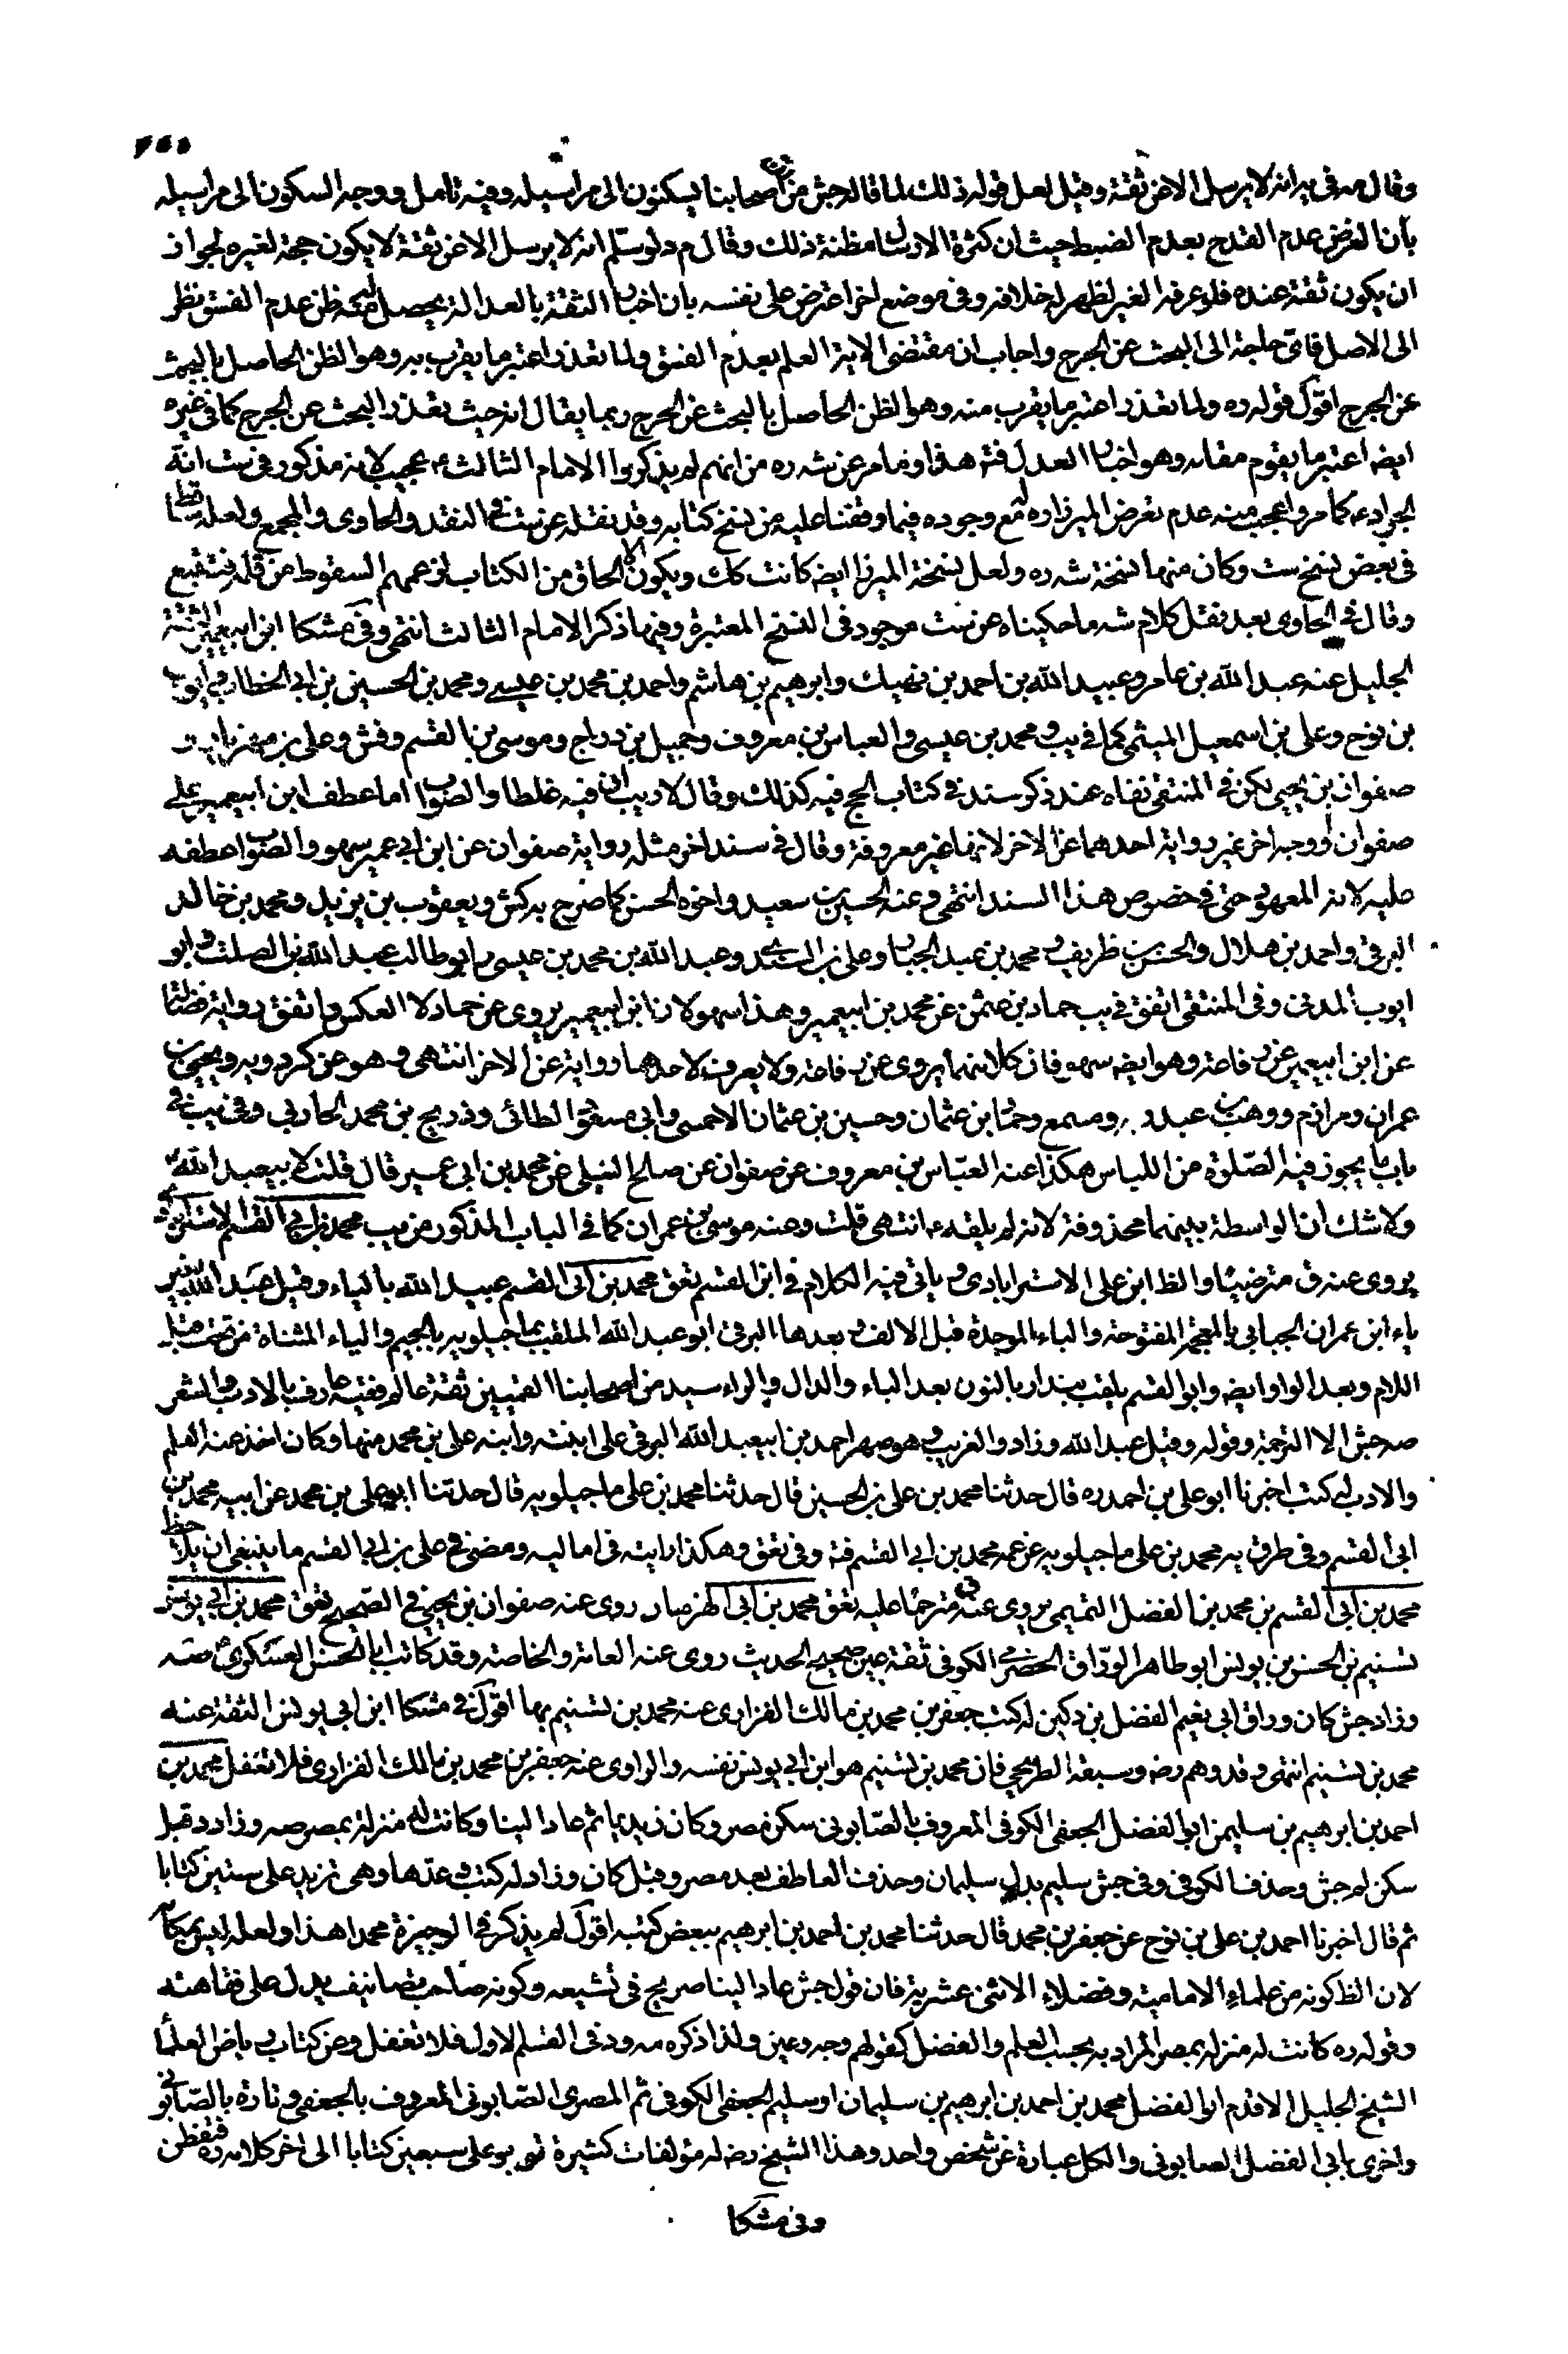 ٢٥٥
وقال مه في يه انه لا يرسل الا عن ثقة وقيل لعل قوله ذلك لما قاله جش من ان اصحابنا يسكنون الى مراسيله وفيه تامل ووجه السكون الى مراسيله
بان الغرض عدم القدح بعدم الضبط حيث ان كثرة الارسال مظنة ذلك وقال م د لو سلم انه لا يرسل الا عن ثقة لا يكون حجة لغيره لجواز
ان يكون ثقة عنده فلو عرفه الغير لظهر له خلافه وفي موضع اخر اعترض على نفسه بان اخبار الثقة بالعدالة يحصل منه ظن عدم الفسق نظر
الى الاصل فاي حاجة الى البحث عن الجرح واجاب ان مقتضى الاية العلم بعدم الفسق ولما تعذر اعتبر ما يقرب به وهو الظن الحاصل بالبحث
عن الجرح اقول قوله ره ولما تعذر اعتبر ما يقرب منه وهو الظن الحاصل بالبحث عن الجرح ربما يقال انه حيث تعذر البحث عن الجرح كما في غيره
ايضا اعتبر ما يقوم مقامه وهو اخبار العدل فتد هذا وما مر عن شه ره من انهم لم يذكروا الامام الثالث ع عجيب لانه مذكور في ست انه
الجواد ع كما مر واعجب منه عدم تعرض الميرزا ره له مع وجوده فيما وقفنا عليه من نسخ كتابه وقد نقله عن ست في النقد والحاوي والمجمع ولعله ساقط
في بعض نسخ ست وكان منها نسخة شه ره ولعل نسخة الميرزا ايضا كانت كك ويكون الالحاق من الكتاب لزعمهم السقوط من قلمه فتتبع
وقال في الحاوي بعد نقل كلام شه ما حكيناه عن ست موجود في النسخ المعتبرة وفيها ذكر الامام الثالث انتهى وفي مشكا ابن ابيعمير الثقة
الجليل عنه عبد الله بن عامر وعبيد الله بن احمد بن نهيك وابرهيم بن هاشم واحمد بن محمد بن عيسى ومحمد بن الحسين بن ابي الخطاب وايوب
بن نوح وعلي بن اسمعيل الميثمي كما في يب ومحمد بن عيسى والعباس بن معروف وجميل بن دراج وموسى بن القسم وفش وعلي بن مهزيار
صفوان بن يحيى لكن في المنتقى نفاه عند ذكر سند في كتاب الحج فيه كذلك وقال لا ريب ان فيه غلطا والصواب اما عطف ابن ابيعمير على
صفوان او وجه اخر غير رواية احدهما عن الاخر لانها غير معروفة وقال في سند اخر مثله رواية صفوان عن ابن ابي عمير سهو والصواب عطفه
عليه لانه المعهود حتى في خصوص هذا السند انتهى وعنه الحسين بن سعيد واخوه الحسن كما صرح به كش ويعقوب بن يزيد ومحمد بن خالد
البرقي واحمد بن هلال والحسن بن ظريف ومحمد بن عبد الجبار وعلي بن السندي وعبد الله بن محمد بن عيسى وابو طالب عبد الله بن الصلت وابو
ايوب المدني وفي المنتقى اتفق في يب حماد بن عثمن عن محمد بن ابيعمير وهذا سهو لان ابن ابيعمير يروي عن حماد لا العكس واتفق رواية فضالة
عن ابن ابيعمير عن رفاعة وهو ايضا سهو فان كلا منهما يروي عن رفاعة ولا يعرف لاحدهما رواية عن الاخر انتهى وهو عن كردويه ويحيى بن
عمران ومرازم ووهب بن عبد ربه ومسمع وحماد بن عثمان وحسين بن عثمان الاحمسي وابي مسعود الطائي وذريح بن محمد المحاربي وفي يب في
باب ما يجوز فيه الصلوة من اللباس هكذا عنه العباس بن معروف عن صفوان عن صالح النيلي عن محمد بن ابي عمير قال قلت لابيعبد الله ع
ولا شك ان الواسطة بينهما محذوفة لانه لم يلقه ع انتهى قلت وعنه موسى بن عمران كما في الباب المذكور من يب محمد بن ابي القسم الاسترابادي
يروي عنه ق مترضيا والظ ابن علي الاسترابادي وياتي فيه الكلام في ابن القسم تعق محمد بن ابي القسم عبيد الله بالياء وقيل عبد الله بغير
ياء ابن عمران الجنابي بالمعجمة المفتوحة والباء الموحدة قبل الالف وبعدها البرقي ابو عبد الله الملقب بماجيلويه بالجيم والياء المثناة من تحت قبل
اللام وبعد الواو ايضا وابو القسم يلقب بندار بالنون بعد الباء والدال والراء سيد من اصحابنا القميين ثقة عالم فقيه عارف بالادب والشعر
صه جش الا الترجمة وقوله وقيل عبد الله وزاد والغريب وهو صهر احمد بن ابيعبد الله البرقي على ابنته وابنه علي بن محمد منها وكان اخذ عنه العلم
والادب له كتب اخبرنا ابو علي بن احمد ره قال حدثنا محمد بن علي بن الحسين قال حدثنا محمد بن علي ماجيلويه قال حدثنا ابو علي بن محمد عن ابيه محمد بن
ابي القسم وفي طرق يه محمد بن علي ماجيلويه عن عمه محمد بن ابي القسم فتد وفي تعق وهكذا رايته في اماليه ومضى في علي بن ابي القسم ما ينبغي ان يلاحظ
محمد بن ابي القسم بن محمد بن الفضل التميمي يروي عنه ق مترحما عليه تعق محمد بن ابي الهزهاز روى عنه صفوان بن يحيى في الصحيح تعق محمد بن ابي يونس
تسنيم بن الحسن بن يونس ابو طاهر الوراق الحضرمي الكوفي ثقة عين صحيح الحديث روى عنه العامة والخاصة وقد كاتب ابا الحسن العسكري ع صه
وزاد جش كان وراق ابي نعيم الفضل بن دكين له كتب جعفر بن محمد بن مالك الفزاري عنه محمد بن تسنيم بها اقول في مشكا ابن ابي يونس الثقة عنه
محمد بن تسنيم انتهى وقد وهم ره وسبقه الطريحي فان محمد بن تسنيم هو ابن ابي يونس نفسه والراوي عنه جعفر بن محمد بن مالك الفزاري فلا تغفل محمد بن
احمد بن ابرهيم بن سليمن ابو الفضل الجعفي الكوفي المعروف بالصابوني سكن مصر وكان زيديا ثم عاد الينا وكانت له منزلة بمصر صه وزاد د قبل
سكن لم جش وحذف الكوفي وفي جش سليم بدل سليمان وحذف العاطف بعد مصر وقبل كان وزاد له كتب وعدها وهي تزيد على ستين كتابا
ثم قال اخبرنا احمد بن علي بن نوح عن جعفر بن محمد قال حدثنا محمد بن احمد بن ابرهيم ببعض كتبه اقول لم يذكر في الوجيزة محمدا هذا ولعله ليس بمكانه
لان الظ كونه من علماء الامامية وفضلاء الاثنى عشرية فان قول جش عاد الينا صريح في تشيعه وكونه صاحب تصانيف يدل على فقاهته
وقوله ره كانت له منزلة بمصر المراد به بحسب العلم والفضل كقولهم وجه وعين ولذا ذكره مه ود في القسم الاول فلا تغفل وعن كتاب رياض العلماء
الشيخ الجليل الاقدم ابو الفضل محمد بن احمد بن ابرهيم بن سليمان او سليم الجعفي الكوفي ثم المصري الصابوني المعروف بالجعفي وتارة بالصابوني
واخرى بابي الفضل الصابوني والكل عبارة عن شخص واحد وهذا الشيخ ره له مؤلفات كثيرة تربو على سبعين كتابا الى اخر كلامه ره فتفطن
وفي مشكا